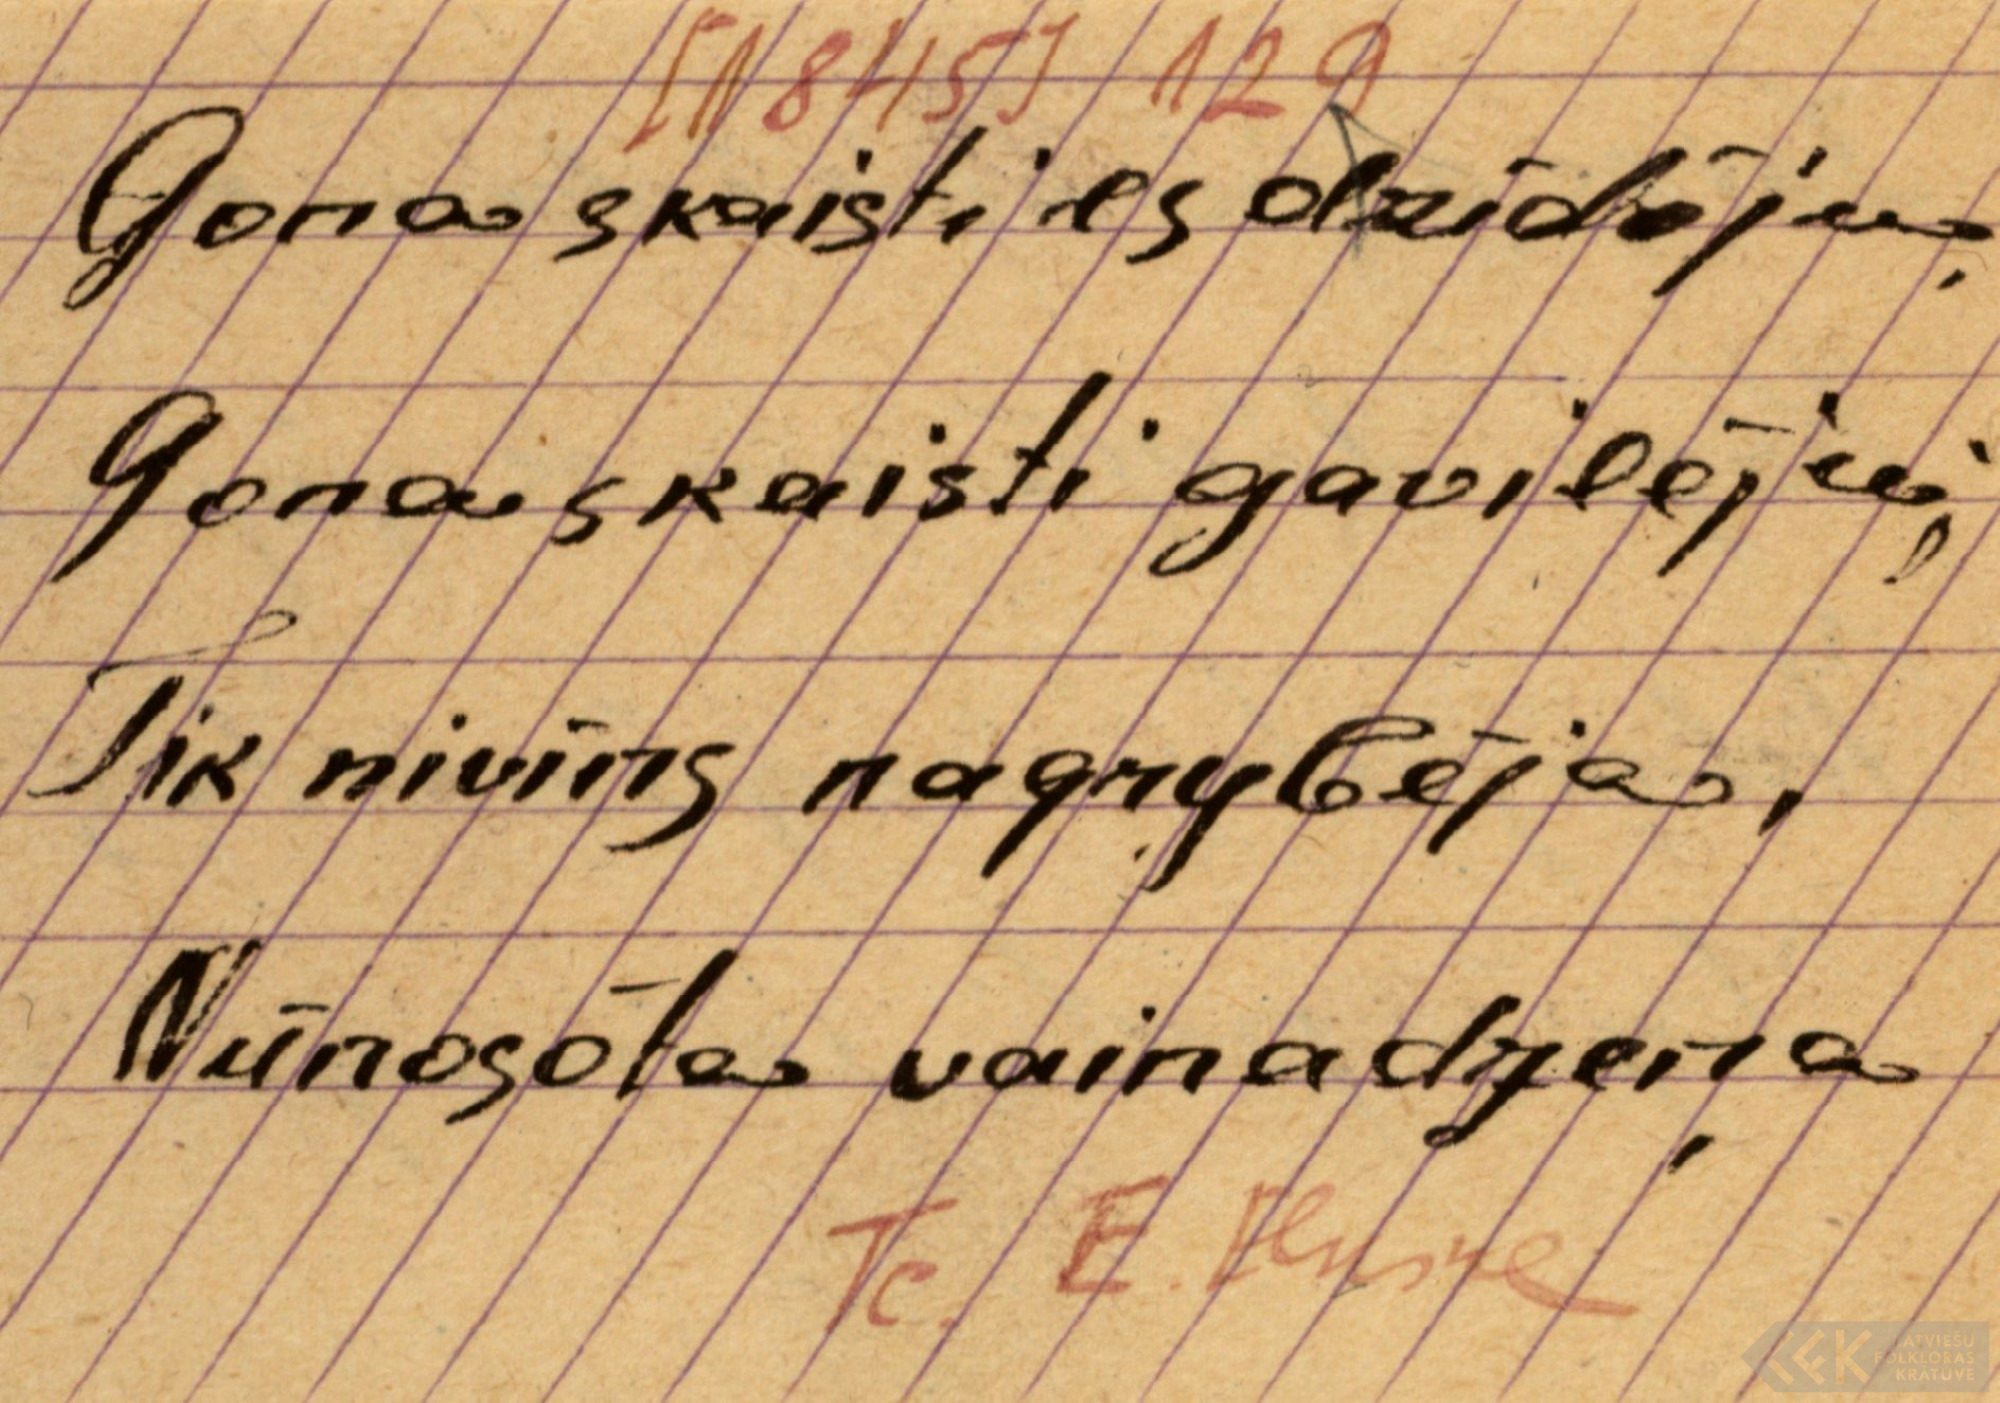 [1845] 129
Gona skaisti es dzīdōju,
Gona skaisti gavilēju;
Tik nivīns nagrybēja,
Nūnosōta vainadzeņa
Tc. E.
LATVIEŠU
FOLKLORAS
KRĀTUVE